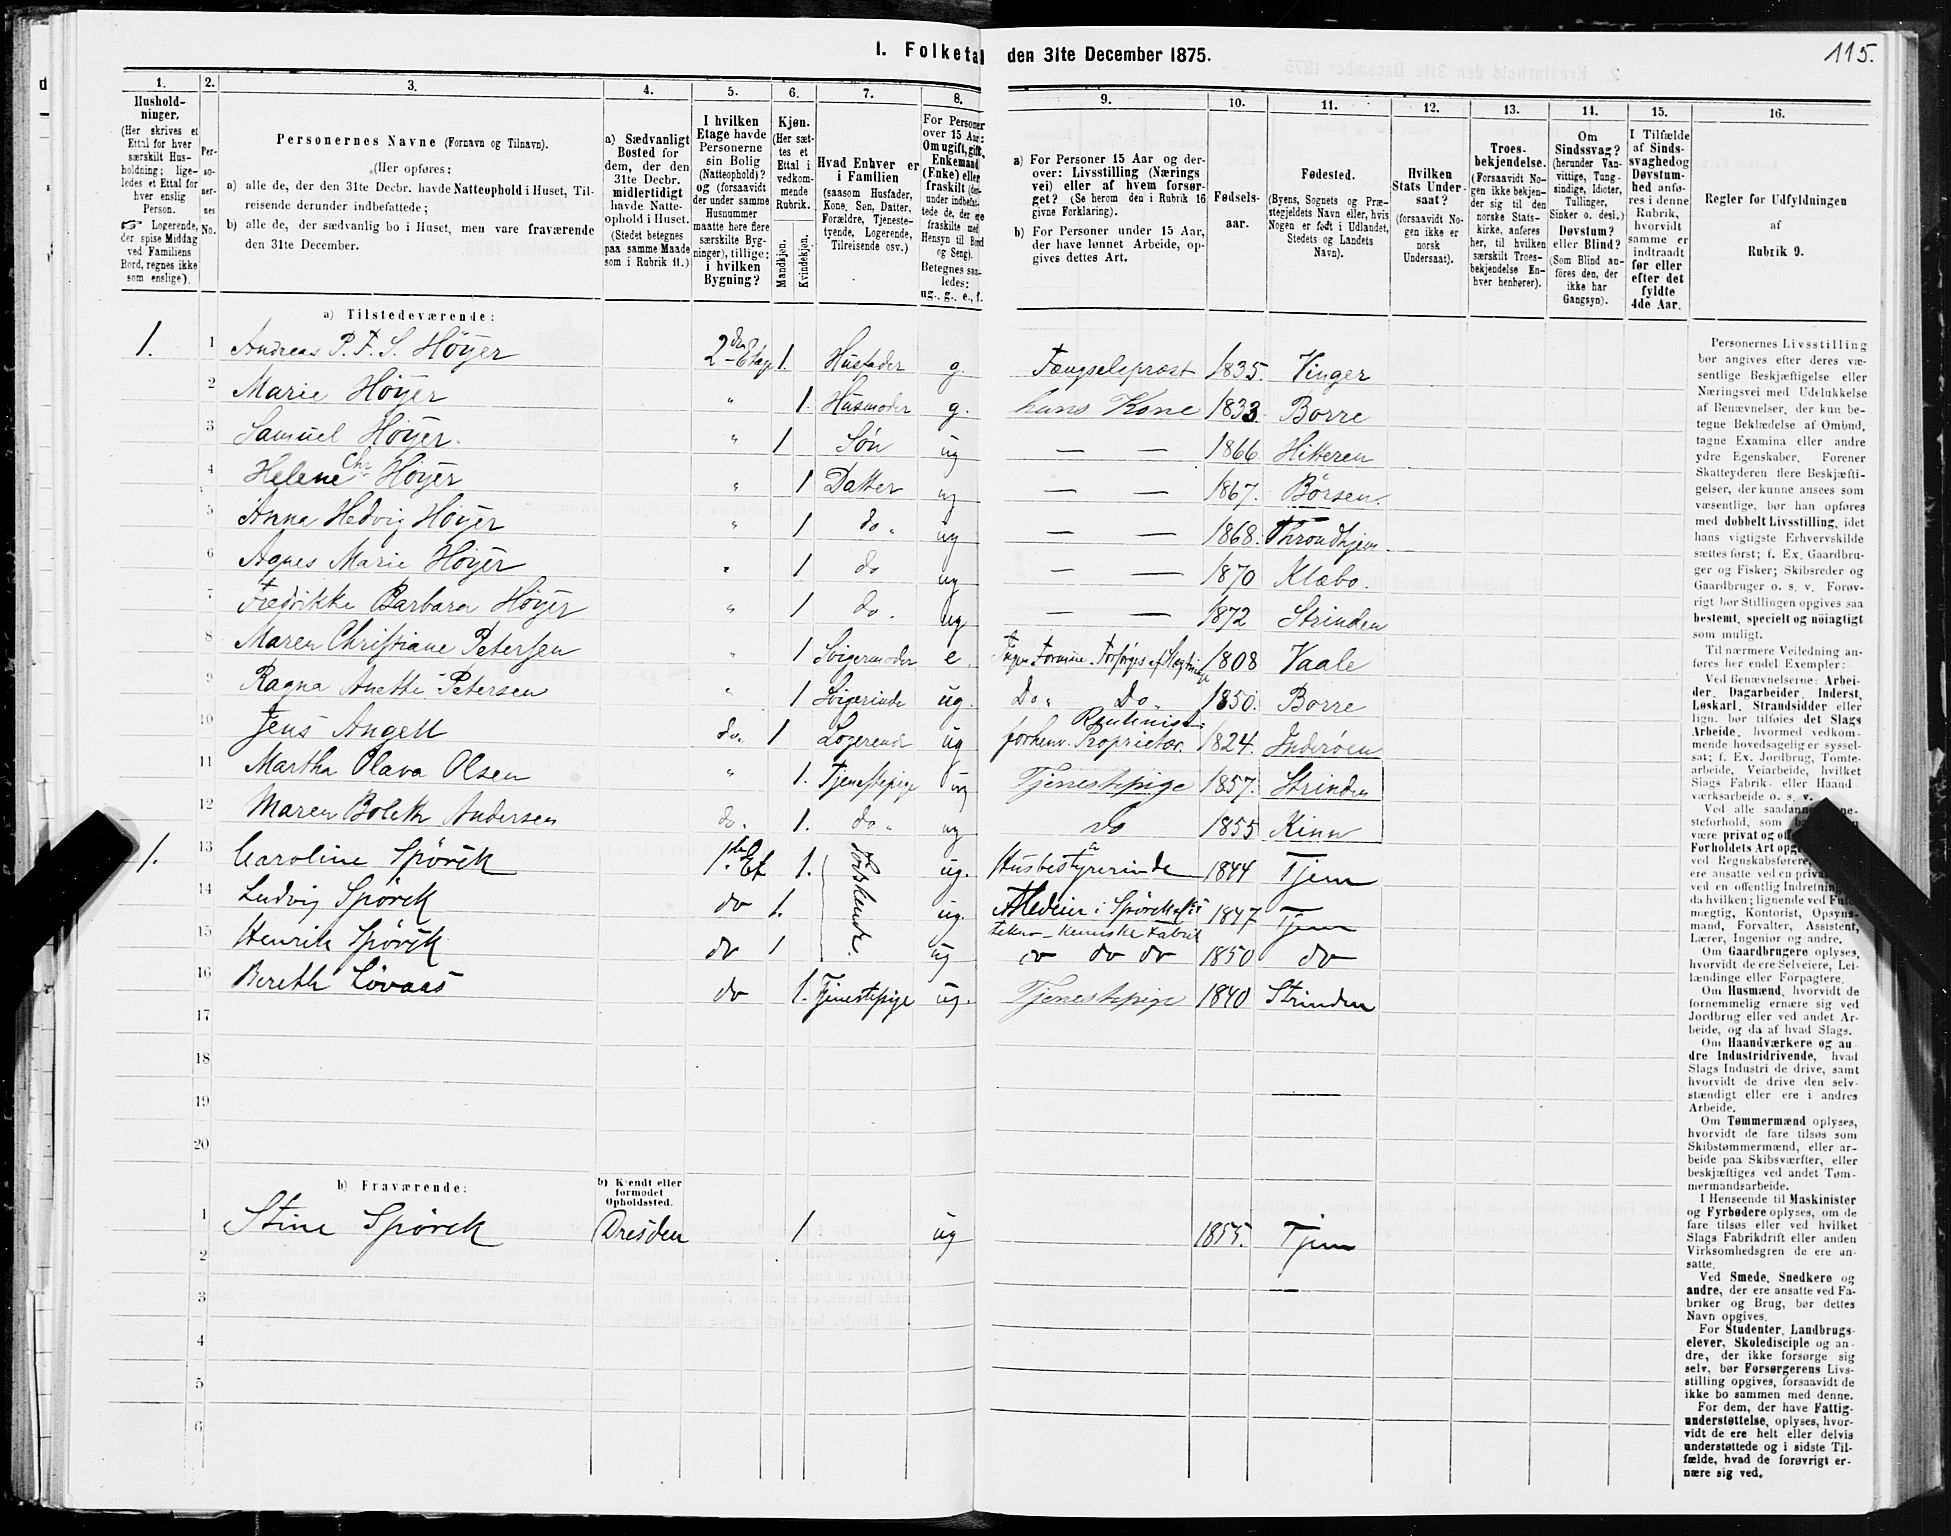 115.
I. Folketal den 31te December 1875.
1. 2. 3. 4. 5. 6. 7. 8. 9. 10. 11. 12. 13. 14. 15. 16.
Hushold-
ninger.
(Her skrives et
Ettal for hver
særskilt Hus-
holdning; lige-
ledes et Ettal for
hver enslig
Person.
☞ Logerende,
der spise Middag
ved Familiens
Bord, regnes ikke
som enslige).
Per-
so-
ner-
nes
No.
Personernes Navne (Fornavn og Tilnavn).
(Her opføres:
a) alle de, der den 31te Decbr. havde Natteophold i Huset, Til-
reisende derunder indbefattede;
b) alle de, der sædvanlig bo i Huset, men vare fraværende
den 31te December.
a) Sædvanligt
Bosted for
dem, der den
31te Decbr.
midlertidigt
havde Natte-
ophold i Huset.
(Stedet betegnes
paa samme Maade
som i Rubrik 11.)
I hvilken
Etage havde
Personerne
sin Bolig
(Natteophold)?
og (forsaavidt
der under samme
Husnummer
maatte høre flere
særskilte Byg-
ninger), tillige:
i hvilken
Bygning?
Kjøn.
(Her sæt-
tes et
Ettal i
vedkom-
mende
Rubrik.
Mandkjøn.
Kvindekjøn.
Hvad Enhver er
i Familien
(saasom Husfader,
Kone, Søn, Datter,
Forældre, Tjeneste-
tyende, Logerende,
Tilreisende osv.)
For Personer
over 15 Aar:
Om ugift, gift,
Enkemand
(Enke) eller
fraskilt
Betegnes saa-
ledes:
ug., g., e., f.
a) For Personer 15 Aar og der-
over: Livsstilling (Nærings
vei) eller af hvem forsør-
get? (Se herom den i Rubrik 16
givne Forklaring).
b) For Personer under 15 Aar,
der have lønnet Arbeide, op-
gives dettes Art.
Fødsels-
aar.
Fødested.
(Byens, Sognets og Præ-
stegjeldets Navn eller, hvis
Nogen er født i Udlandet,
Stedets og Landets
Navn).
Hvilken
Stats Under-
saat?
(forsaavidt No-
gen ikke er
norsk
Undersaat).
Troes-
bekjendelse.
(Forsaavidt No-
gen ikke bekjen-
der sig til den
norske Stats-
kirke, anføres
her, til hvilken
særskilt Troes-
bekjendelse En-
hver henhører).
Om
Sindssvag?
(herunder Van-
vittige, Tung-
sindige, Idioter,
Tullinger,
Sinker o. desl.)
Døvstum?
eller Blind?
(Som Blind an-
føres den, der
ikke har
Gangsyn).
I Tilfælde
af Sinds-
svaghed og
Døvstum-
hed anfø-
res i denne
Rubrik,
hvorvidt
samme er
indtraadt
før eller
efter det
fyldte
4de Aar.
Regler for Udfyldningen
af
Rubrik 9.
a) Tilstedeværende:
1. 1 Andreas P. F. S. Höyer 2den Etage 1. Husfader g. Fængselsprest 1835. Vinger
2 Marie Höyer " 1. Husmoder g. hans Kone 1833 Borre
3 Samuel Höyer. " 1 Søn ug — — 1866 Hitteren
4 Helene Chr Höyer " 1 Datter ug — — 1867. Börsen.
5 Anna Hedvig Höyer " 1 do " ug — — 1868. Throndhjem.
6 Agnes Marie Höyer " 1 do ug — — 1870 Klæbo.
7 Fredrikke Barbara Höyer " 1 do. ug — — 1872 Strinden
8 Maren Christiane Petersen " 1 Svigermoder e. Ingen Formue. Forsørges af 1808 Vaale
9 Ragna Anette Petersen " 1 Svigerinde ug. Do " Do " 1850. Borre
10 Jens Angell do. 1 Logerende ug Rentenist.
forhenv. Proprietær. 1824. Inderøen
11 Martha Olava Olsen " 1. Tjenestepige ug Tjenestepige 1857. Strinden
12 Maren Boleth Andersen do. 1. do " ug do 1855 Kinn
1. 13 Caroline Spörck 1ste Et 1. Södskende. ug. Husbestyrerinde 1844 Tjem
14 Ludvig Spörck do 1. ug. Medeier i Spörck
tekno-kemiske Fabrik 1847 Tjem
15 Henrik Spörck do 1 ug do do do 1850 do
16 Bereth Lövaas do 1. Tjenestepige ug. Tjenestepige 1840 Strinden
17
18
19
20
b) Fraværende:
b) Kjendt eller
formodet
Opholdssted.
1 Stine Spörck Dresden 1 ug 1855. Tjem
2
3
4
5
6
Personernes Livsstilling
bør angives efter deres væ-
sentlige Beskjæftigelse eller
Næringsvei med Udelukkelse
af Benævnelser, der kun be-
tegne Beklædelse af Ombud,
tagne Examina eller andre
ydre Egenskaber. Forener
Skatteyderen flere Beskjæfti-
gelser, der kunne ansees som
væsentlige, bør han opføres
med dobbelt Livsstilling, idet
hans vigtigste Erhvervskilde
sættes først; f. Ex. Gaardbru-
ger og Fisker; Skibsreder og
Gaardbruger o. s. v. Forøv-
rigt bør Stillingen opgives saa
bestemt, specielt og nöiagtigt
som muligt.
Til nærmere Veiledning an-
føres her endel Exempler:
Ved Benævnelserne: Arbei-
der, Dagarbeider, Inderst,
Løskarl, Strandsidder eller
lign. bør tilføies det Slags
Arbeide, hvormed vedkom-
mende hovedsagelig er syssel-
sat; f. Ex. Jordbrug, Tomte-
arbeide, Veiarbeide, hvilket
Slags Fabrik- eller Haand-
værksarbeide o. s. v.
Ved alle saadanne
steforhold, som
være privat og
Forholdets Art
ved Regnskabsførere,
ere ansatte ved en
ved en offentlig Indretning,
da hvilken; lignende ved Fuld-
mægtig, Kontorist, Opsyns-
mand, Forvalter, Assistent,
Lærer, Ingeniør og andre.
Om Gaardbrugere oplyses,
hvorvidt de ere Selveiere, Lei-
lændinge eller Forpagtere.
Om Husmænd, hvorvidt de
fornemmelig ernære sig ved
Jordbrug eller ved andet Ar-
beide, og da af hvad Slags.
Om Haandværkere og an-
dre Industridrivende, hvad
Slags Industri de drive, samt
hvorvidt de drive den selv-
stændigt eller ere i andres
Arbeide.
Om Tømmermænd oplyses,
hvorvidt de fare tilsøs som
Skibstømmermænd, eller ar-
beide paa Skibsværfter, eller
beskjæftiges ved andet Tøm-
mermandsarbeide.
I Henseende til Maskinister
og Fyrbødere oplyses, om de
fare tilsøs eller ved hvilket
Slags Fabrikdrift eller anden
Virksomhedsgren de ere an-
satte.
Ved Smede, Snedkere og
andre, der ere ansatte ved Fa-
briker og Brug, bør dettes
Navn opgives.
For Studenter, Landbrugs-
elever, Skoledisciple og an-
dre, der ikke forsørge sig
selv, bør Forsørgerens Livs-
stilling opgives, forsaavidt de
ikke bo sammen med denne.
For dem, der have Fattig-
understøttelse, oplyses, hvor-
vidt de ere helt eller delvis
understøttede og i sidste Til-
fælde, hvad de forøvrigt er-
nære sig ved.